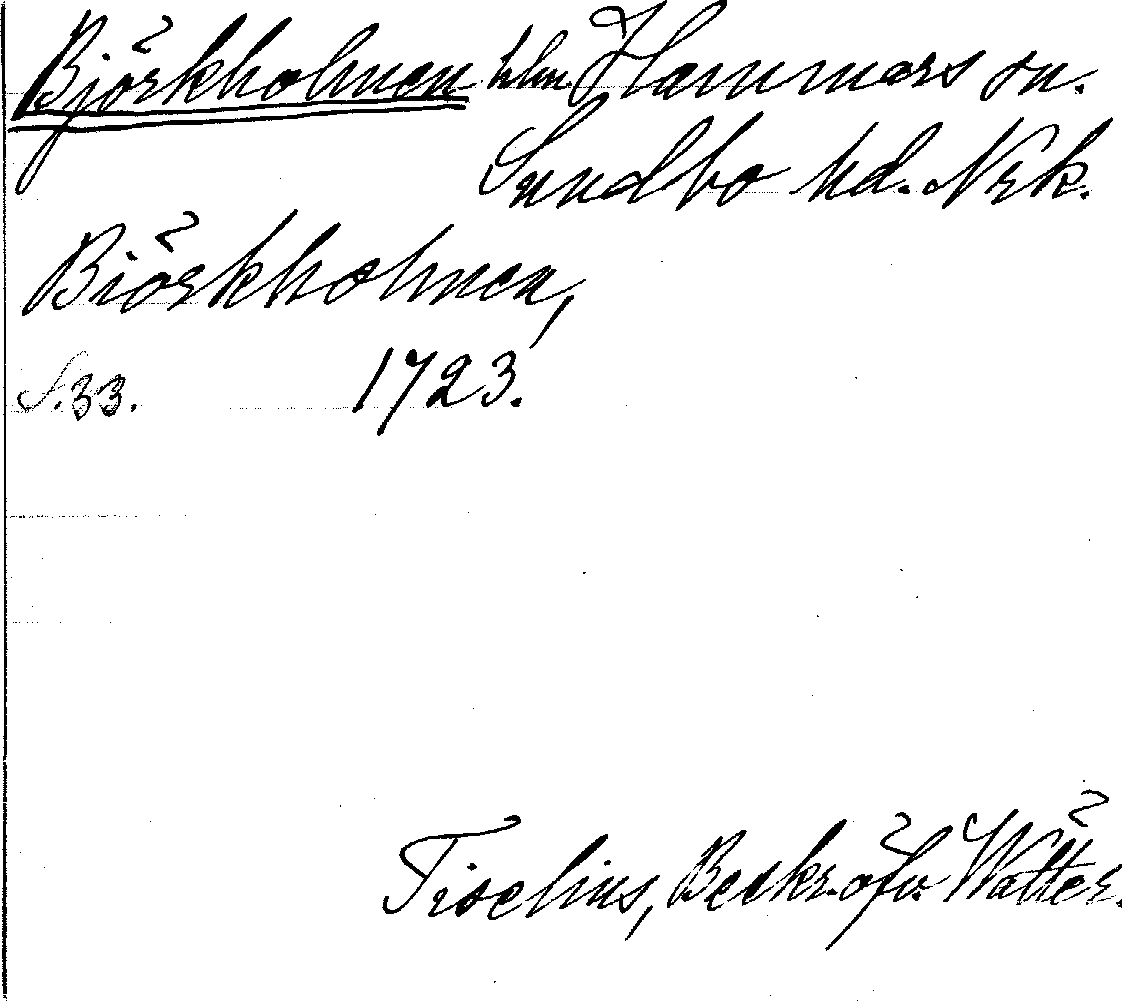 Björkholmen hlm. Hammars sn.
Sundbo hd. Nrk.
Biörkholmen,
S.33. 1723.
Tiselius, Beskr. öfv. Wätter.